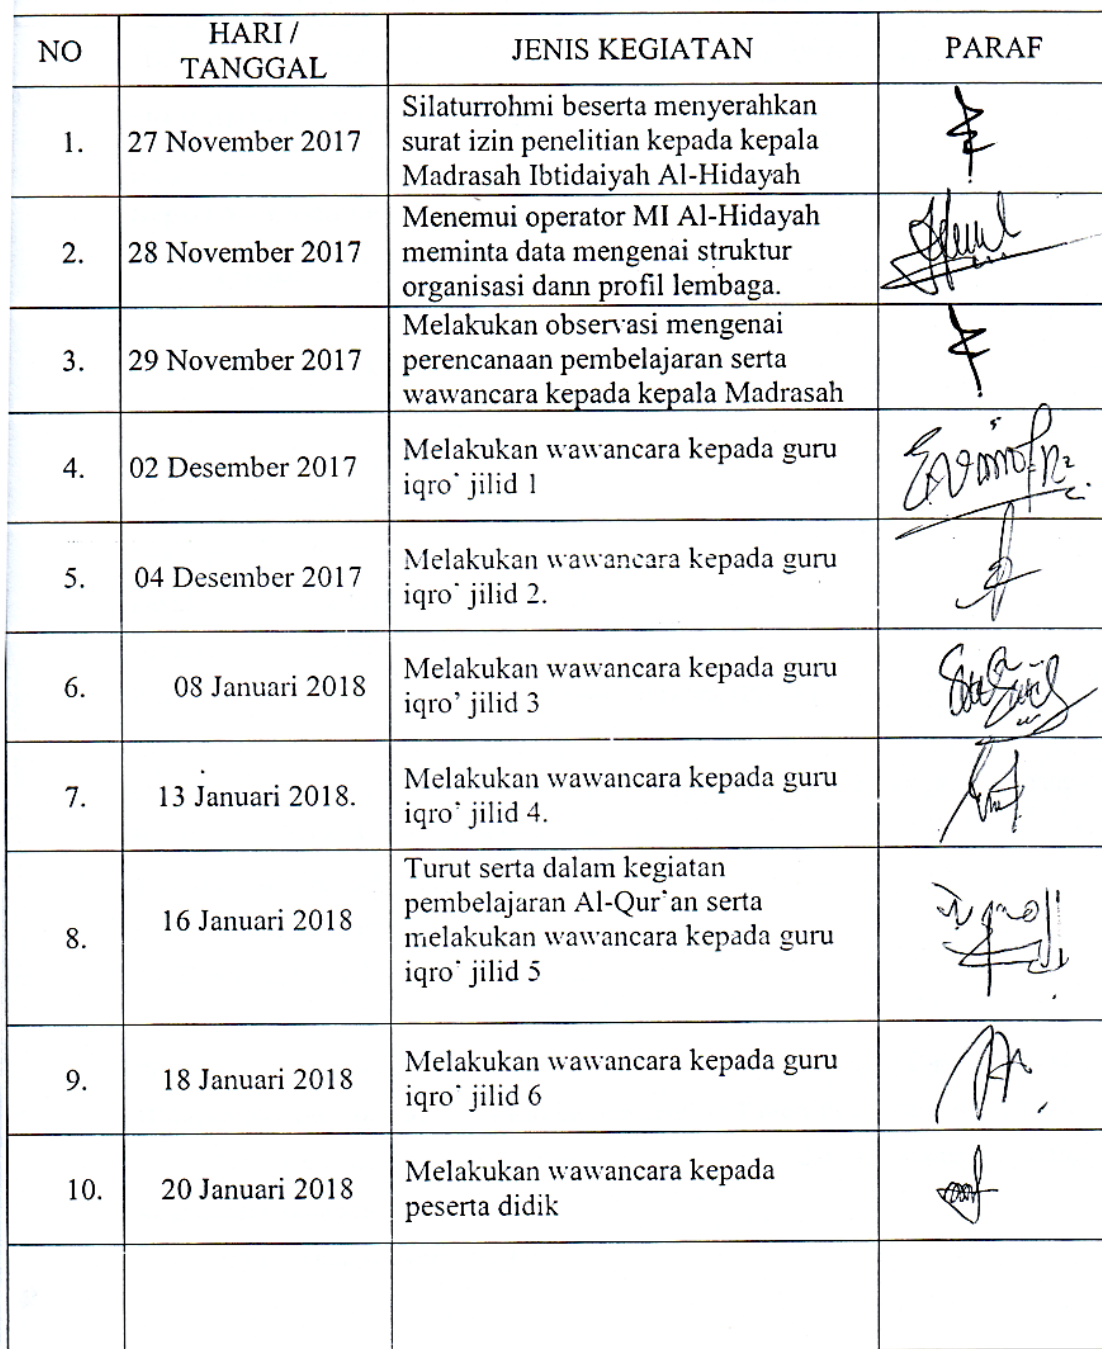 NO
HARI /
TANGGAL
JENIS KEGIATAN
PARAF
1.
27 November 2017
Silaturrohmi beserta menyerahkan
surat izin penelitian kepada kepala
Madrasah Ibtidaiyah Al-Hidayah
2.
28 November 2017
Menemui operator MI Al-Hidayah
meminta data mengenai struktur
organisasi dann profil lembaga.
3.
29 November 2017
Melakukan observasi mengenai
perencanaan pembelajaran serta
wawancara kepada kepala Madrasah
4.
02 Desember 2017
Melakukan wawancara kepada guru
iqro' jilid 1
5.
04 Desember 2017
Melakukan wawancara kepada guru
iqro' jilid 2.
6.
08 Januari 2018
Melakukan wawancara kepada guru
iqro' jilid 3
7.
13 Januari 2018.
Melakukan wawancara kepada guru
iqro' jilid 4.
8.
16 Januari 2018
Turut serta dalam kegiatan
pembelajaran Al-Qur'an serta
melakukan wawancara kepada guru
iqro' jilid 5
9.
18 Januari 2018
Melakukan wawancara kepada guru
iqro' jilid 6
10.
20 Januari 2018
Melakukan wawancara kepada
peserta didik